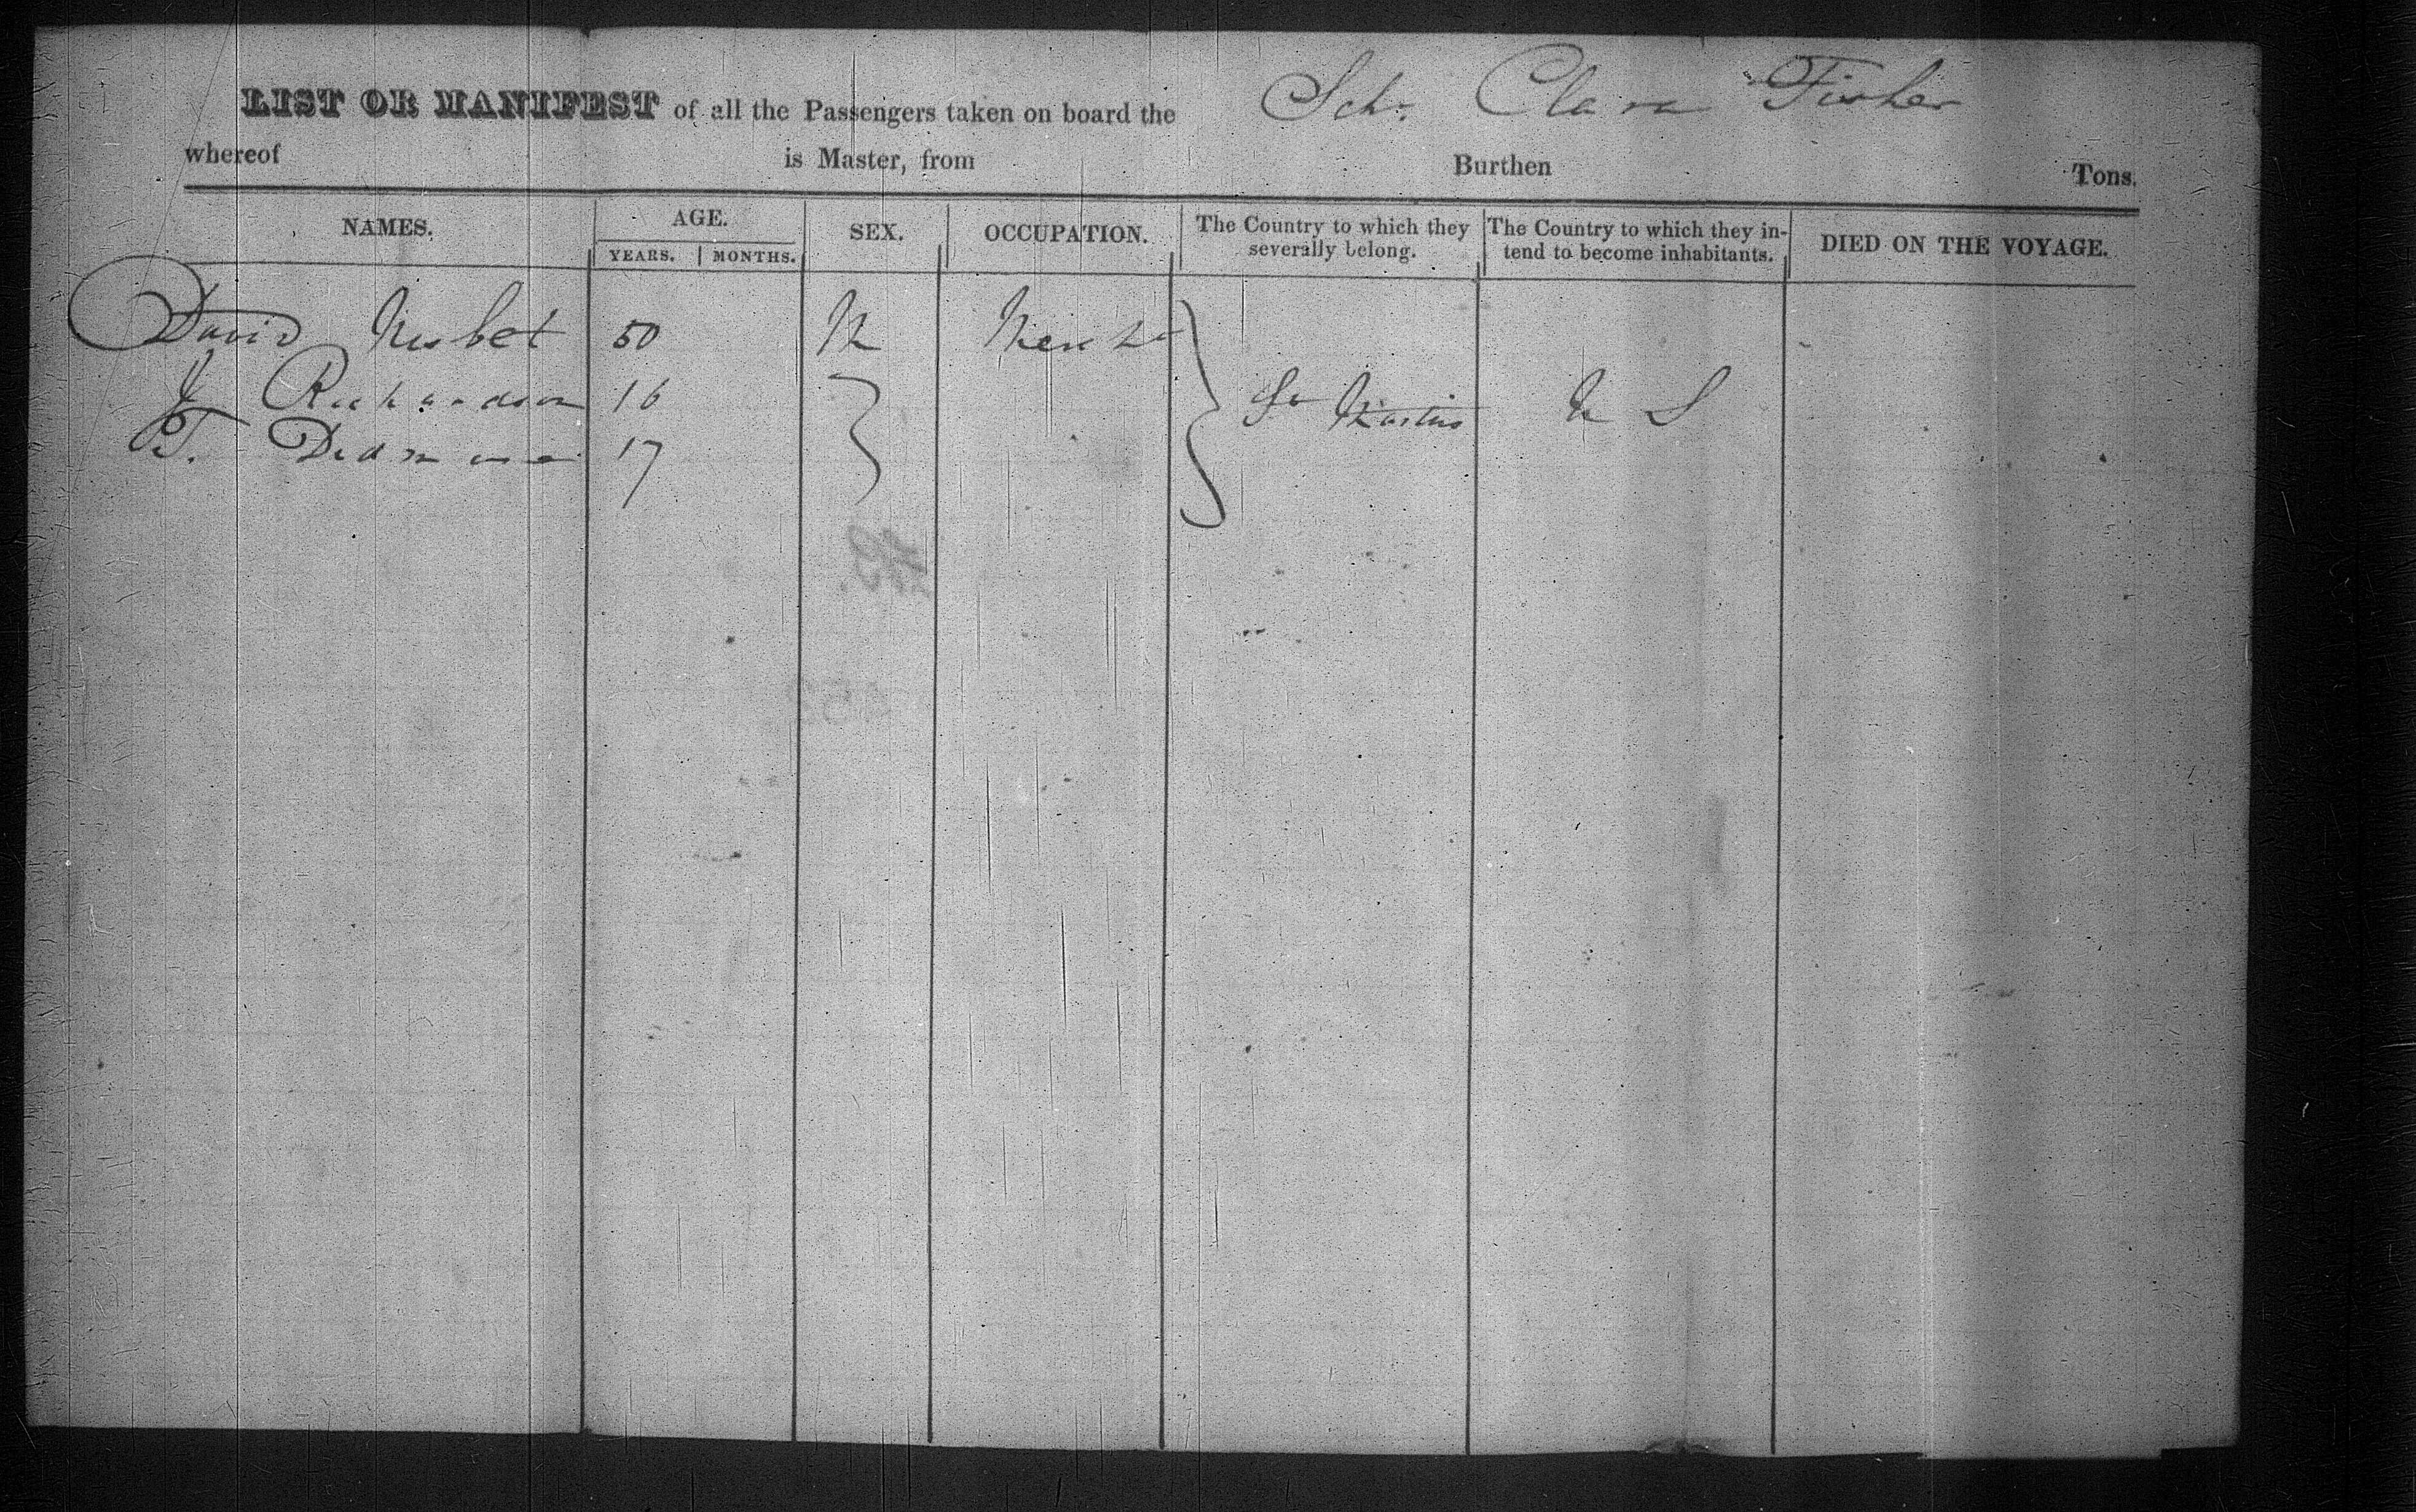 LIST OR MANIFEST of all the Passengers taken on board the Schr Clara Fisher
whereof is Master, from Burthen Tons.
NAMES. AGE. SEX. OCCUPATION. The Country to which they severally belong. The Country to which they intend to become inhabitants. DIED ON THE VOYAGE.
YEARS. MONTHS.
David Nesbet 50 M Mercht
J Richardson 16 St Martins U S
T. 17